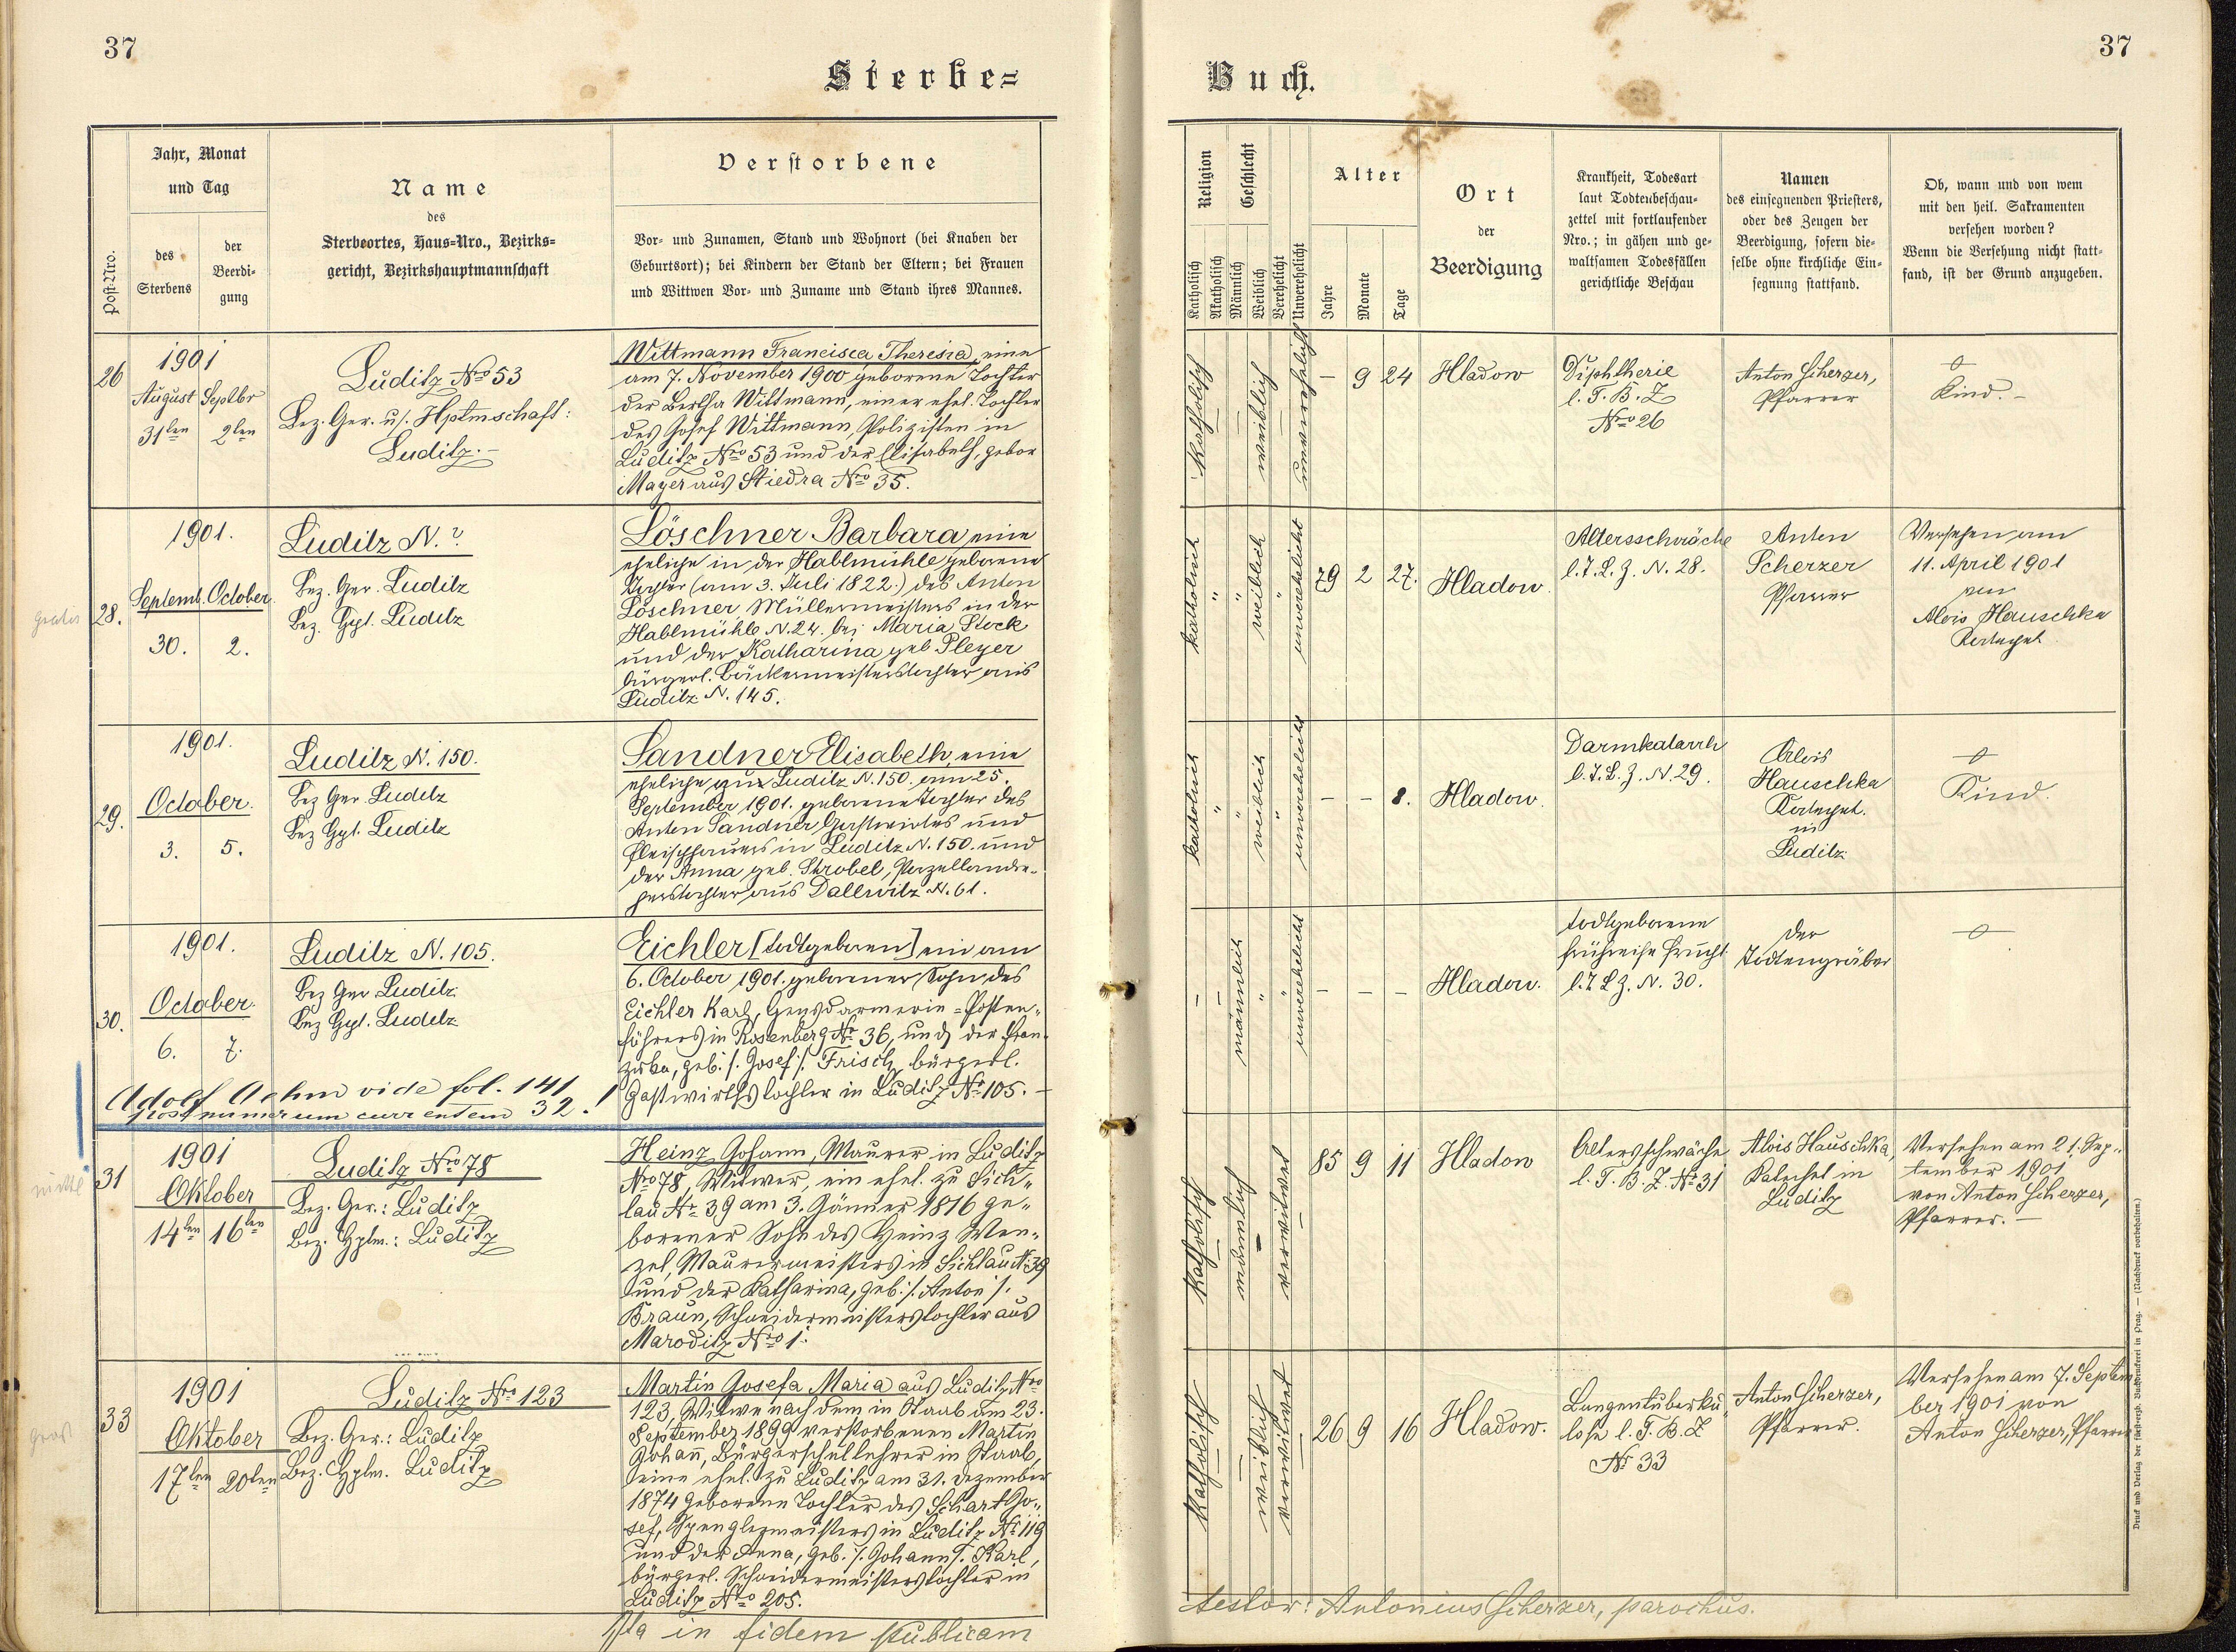 37
Sterbe=
Jahr, Monat
und Tag
Name
des
Sterbeortes, Haus=Nro., Bezirks=
gericht, Bezirkshauptmannschaft
Verstorbene
Post=Nro.
des
Sterbens
der
Beerdi=
gung
Vor= und Zunamen, Stand und Wohnort (bei Knaben der
Geburtsort); bei Kindern der Stand der Eltern; bei Frauen
und Wittwen Vor= und Zuname und Stand ihres Mannes.
26
1901
August Septbr
31ten 2ten
Luditz Nro 53
Bez. Ger. u/. Hptmschaft:
Luditz.-
Wittmann Francisca Theresia, eine
am 7. November 1900 geborene Tochter
der Bertha Wittmann, einer ehel. Tochter
des Josef Wittmann, Polizisten in
Luditz Nro 53 und der Elisabeth, gebor
Mayer aus Stiedra Nro 35.
gratis
28.
1901.
Septemb. October.
30. 2.
Luditz N. ?
Bez. Ger. Luditz
Bez. Hptt. Luditz
Löschner Barbara, eine
eheliche in der Hablmühle geborene
Tochter (am 3. Juli 1822.) des Anton
Löschner Müllermeisters in der
Hablmühle N. 24. bei Maria Stock
und der Katharina geb Pleyer
bürgerl. Bäckermeisterstochter aus
Luditz N. 145.
29.
1901.
October.
3. 5.
Luditz N. 150.
Bez Ger. Luditz
Bez Hptt. Luditz
Sandner Elisabeth, eine
eheliche zu Luditz N. 150. am 25.
September 1901. geborene Tochter des
Anton Sandner Gastwirtes und
Fleischhauers in Luditz N. 150. und
der Anna geb. Strobel, Porzellandre-
herstochter aus Dallwitz N. 61.
30.
1901.
October.
6. 7.
Luditz N. 105.
Bez Ger Luditz
Bez Hptt. Luditz
Eichler [todtgeboren] ein am
6. October 1901. geborener Sohn des
Eichler Karl, Gensdarmerie=Posten-
führers in Rosenberg Nr. 36, und der Fran-
ziska, geb. /. Josef /. Frisch, bürgerl.
Gastwirthstochter in Luditz Nro 105. -
Adolf Aehm vide fol. 141
post numerum currentem 32. !
31
1901
Oktober
14ten 16ten
Luditz Nro 78
Bez. Ger.: Luditz
Bez. Hptm.: Luditz
Heinz Johann, Maurer in Luditz
Nro 78, Witwer, ein ehel. zu Sich-
lau Nr. 39 am 3. Jänner 1816 ge-
borener Sohn des Heinz Wen-
zel, Maurermeisters in Sichlau N. 39
und der Katharina, geb. /. Anton /.
Braun, Schneidermeisterstochter aus
Maroditz Nro 1.
33
1901
Oktober
17ten 20ten
Luditz Nro 123
Bez. Ger.: Luditz
Bez. Hptm. Luditz
Martin Josefa Maria aus Luditz Nro
123, Witwe nach dem in Staab am 23.
September 1899 verstorbenen Martin
Johann, Bürgerschullehrer in Staab,
eine ehel. zu Luditz am 31. Dezember
1874 geborene Tochter des Schart Jo-
sef, Spenglermeisters in Luditz Nr. 119
und der Anna, geb. /. Johann /. Karl,
bürgerl. Schneidermeisterstochter in
Luditz Nro 205.
Ita in fidem publicam
37
Buch.
Religion
Geschlecht
Katholisch
Akatholisch
Männlich
Weiblich
Verehelicht
Unverehelicht
Alter
Jahre
Monate
Tage
Ort
der
Beerdigung
Krankheit, Todesart
laut Todtenbeschau=
zettel mit fortlaufender
Nro.; in gähen und ge=
waltsamen Todesfällen
gerichtliche Beschau
Namen
des einsegnenden Priesters,
oder des Zeugen der
Beerdigung, sofern die=
selbe ohne kirchliche Ein=
segnung stattfand.
Ob, wann und von wem
mit den heil. Sakramenten
versehen worden?
Wenn die Versehung nicht statt=
fand, ist der Grund anzugeben.
katholisch
weiblich
unverehelicht
- 9 24
Hladow
Diphtherie
l. T. B. Z
Nro 26
Anton Scherzer,
Pfarrer
Kind. -
katholisch
weiblich
unverehelicht
79 2 27.
Hladow.
Altersschwäche
l. T. B. Z. N. 28.
Anton
Scherzer
Pfarrer
Versehen am
11. April 1901
von
Alois Hauschka
Katechet
katholisch
weiblich
unverehelicht
- - 8.
Hladow.
Darmkatarrh
l. T. B. Z. N. 29.
Alois
Hauschka
Katechet.
in
Luditz
Kind.
männlich
unverehelicht
- - -
Hladow.
todtgeborene
frühreife Frucht
l. T. B. Z. N. 30.
der
Todtengräber
katholisch
männlich
verwitwet
85 9 11
Hladow
Altersschwäche
l. T. B. Z. Nr. 31
Alois Hauschka,
Katechet in
Luditz
Versehen am 21. Sep-
tember 1901
von Anton Scherzer,
Pfarrer. -
katholisch
weiblich
verwitwet
26 9 16
Hladow.
Lungentuberku-
lose l. T. B. Z
Nr. 33
Anton Scherzer,
Pfarrer.
Versehen am 7. Septem
ber 1901 von
Anton Scherzer, Pfarrer
testor: Antonius Scherzer, parochus.
Druck und Verlag der fürsterzb. Buchdruckerei in Prag. — (Nachdruck vorbehalten.)